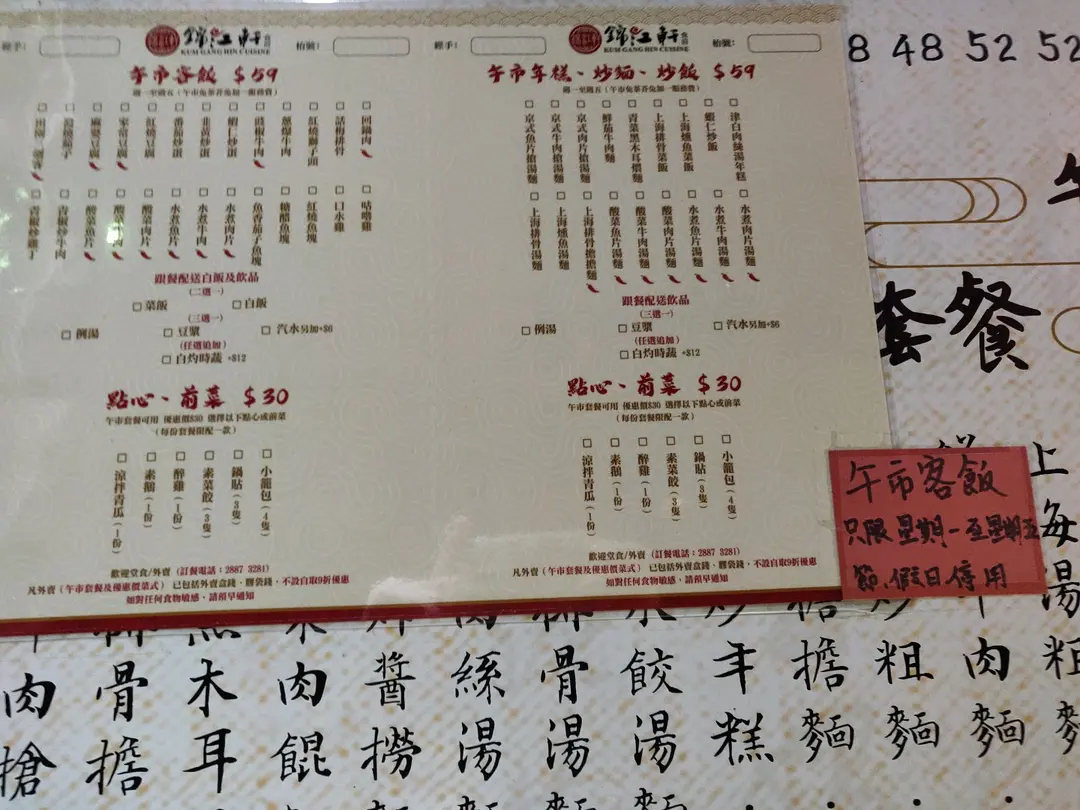 經手：
錦江軒
KUM GANG HIN CUISINE
枱號：
午市客飯 $59
週一至週五（午市免茶芥免加一服務費）
回鍋肉
話梅排骨
紅燒獅子頭
蔥爆牛肉
豉椒牛肉
蝦仁炒蛋
韭黃炒蛋
番茄炒蛋
紅燒豆腐
家常豆腐
麻婆豆腐
咕嚕雞
口水雞
紅燒魚塊
糖醋魚塊
魚香茄子魚塊
水煮肉片
水煮牛肉
水煮魚片
酸菜肉片
酸菜牛肉
酸菜魚片
青椒炒牛肉
青椒炒雞丁
跟餐配送白飯及飲品
(二選一)
菜飯 白飯
(三選一)
例湯 豆漿 汽水另加+$6
(任選追加)
白灼時蔬 +$12
點心、前菜 $30
午市套餐可用 優惠價$30 選擇以下點心或前菜
（每份套餐限配一款）
小籠包(4隻)
鍋貼(3隻)
素菜餃(3隻)
醉雞(1份)
素鵝(1份)
涼拌青瓜(1份)
歡迎堂食/外賣（訂餐電話：2887 3281）
凡外賣（午市套餐及優惠價菜式）已包括外賣盒錢、膠袋錢，不設自取9折優惠
如對任何食物敏感，請預早通知
經手：
錦江軒
KUM GANG HIN CUISINE
枱號：
午市年糕、炒麵、炒飯 $59
週一至週五（午市免茶芥免加一服務費）
津白肉絲湯年糕
蝦仁炒飯
上海燻魚菜飯
上海排骨菜飯
青菜黑木耳煨麵
鮮茄牛肉麵
京式肉片搶湯麵
京式牛肉搶湯麵
京式魚片搶湯麵
水煮肉片湯麵
水煮牛肉湯麵
水煮魚片湯麵
酸菜肉片湯麵
酸菜牛肉湯麵
酸菜魚片湯麵
上海排骨擔擔麵
上海燻魚湯麵
上海排骨湯麵
跟餐配送飲品
(三選一)
例湯 豆漿 汽水另加+$6
(任選追加)
白灼時蔬 +$12
點心、前菜 $30
午市套餐可用 優惠價$30 選擇以下點心或前菜
（每份套餐限配一款）
小籠包(4隻)
鍋貼(3隻)
素菜餃(3隻)
醉雞(1份)
素鵝(1份)
涼拌青瓜(1份)
歡迎堂食/外賣（訂餐電話：2887 3281）
凡外賣（午市套餐及優惠價菜式）已包括外賣盒錢、膠袋錢，不設自取9折優惠
如對任何食物敏感，請預早通知
8 48 52 52
午
套餐
午市客飯
只限星期一至星期五
節.假日停用
上海湯粗
肉麵
炒粗麵
擔麵
炒年糕
水餃湯
骨湯
肉絲湯
炸醬撈
菜肉餛
黑木耳
排骨擔
肉搶